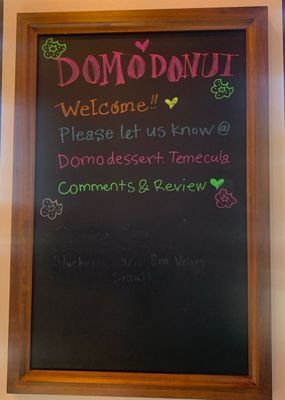 DOMO DONUT
Welcome!!
Please let us know @
Domo dessert. Temecula
Comments & Review